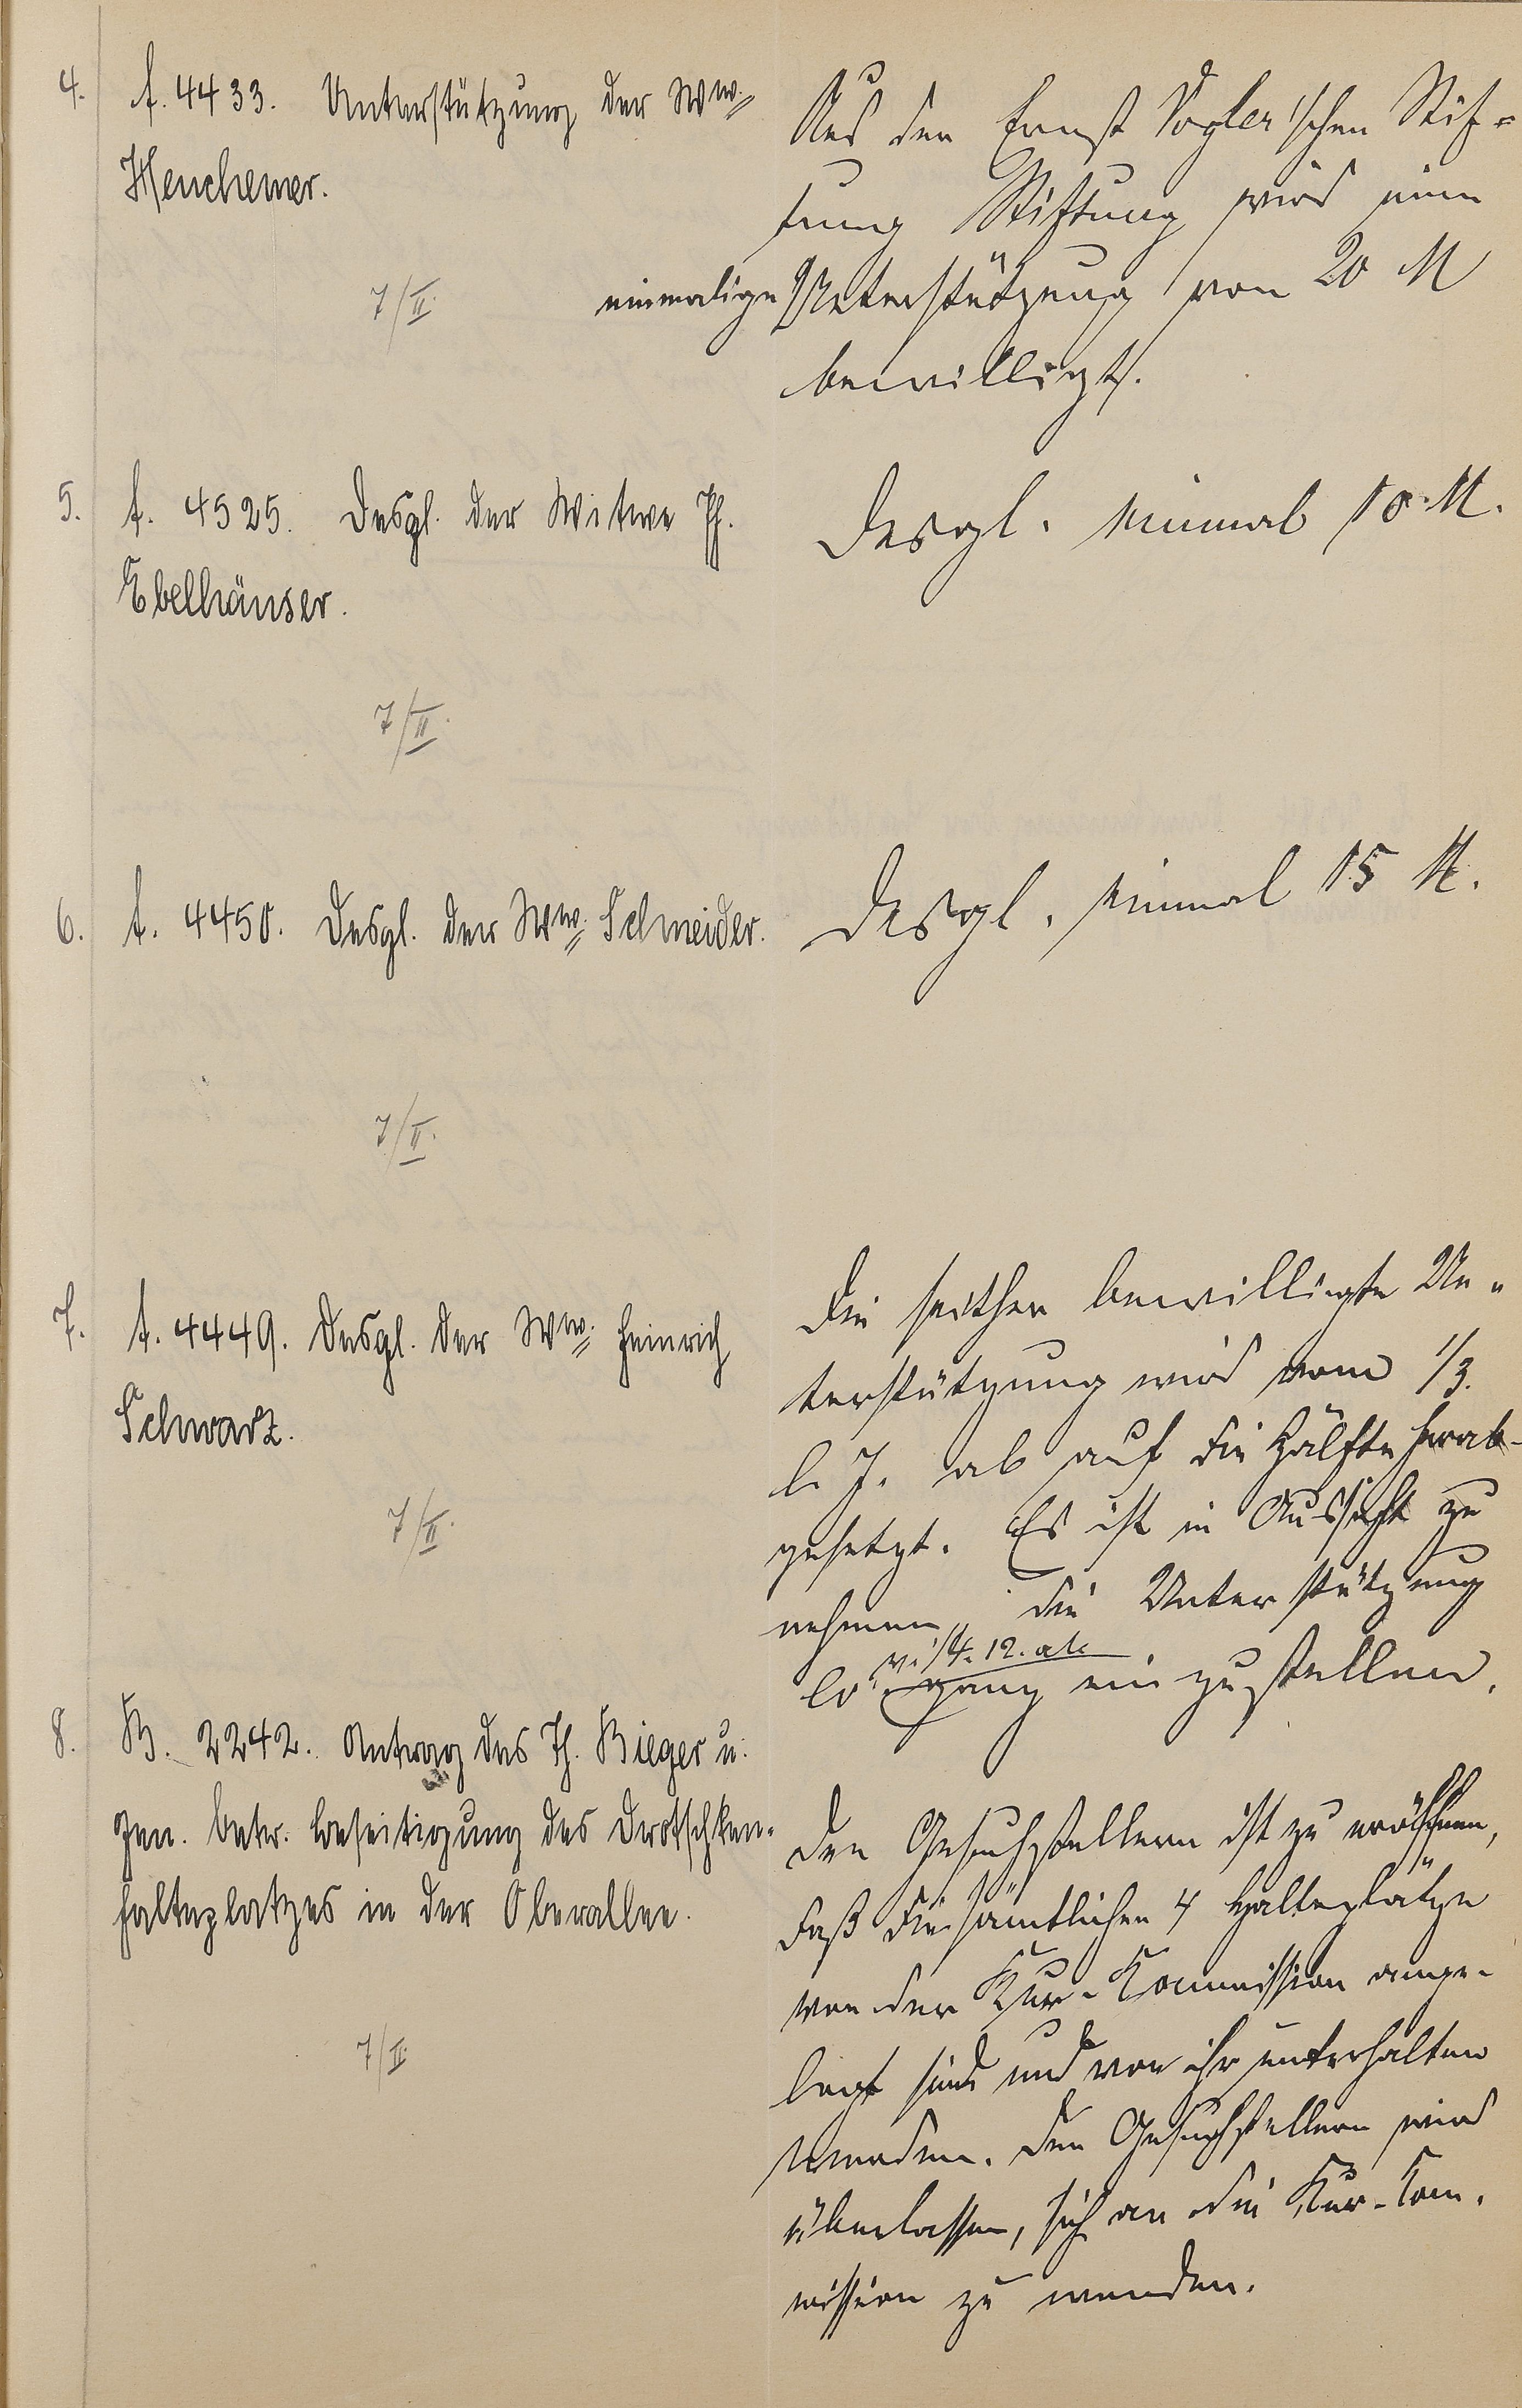 4. A. 4433. Unterstützung der Ww.
Henchemer.
7/II.
Aus der Ernst Vogler'schen Stif-
tung Stiftung wird eine
einmalige Unterstützung von 20 M
bewilligt.
5. A. 4525. Desgl. der Witwe Ph.
Ebelhäuser.
7/II.
Desgl. einmal 10 M.
6. A. 4450. Desgl. der Ww. Schneider.
7/II.
Desgl. einmal 15 M.
7. A. 4449. Desgl. der Ww. Heinrich
Schwarz.
7/II.
Die seither bewilligte Un-
terstützung wird vom 1/3.
l. J. ab auf die Hälfte herab-
gesetzt. Es ist in Aussicht zu
nehmen, die Unterstützung
v. 1/4. 12. ab
einzustellen.
8. B. 2242. Antrag des Th. Rieger u.
Gen. betr. Beseitigung des Drotschken-
halteplatzes in der Oberallee.
7/II.
Den Gesuchstellern ist zu eröffnen,
daß die sämtlichen 4 Halteplätze
von der Kur-Kommission ange-
legt sind und von ihr unterhalten
werden. Den Gesuchstellern wird
überlassen, sich an die Kur-Kom-
mission zu wenden.